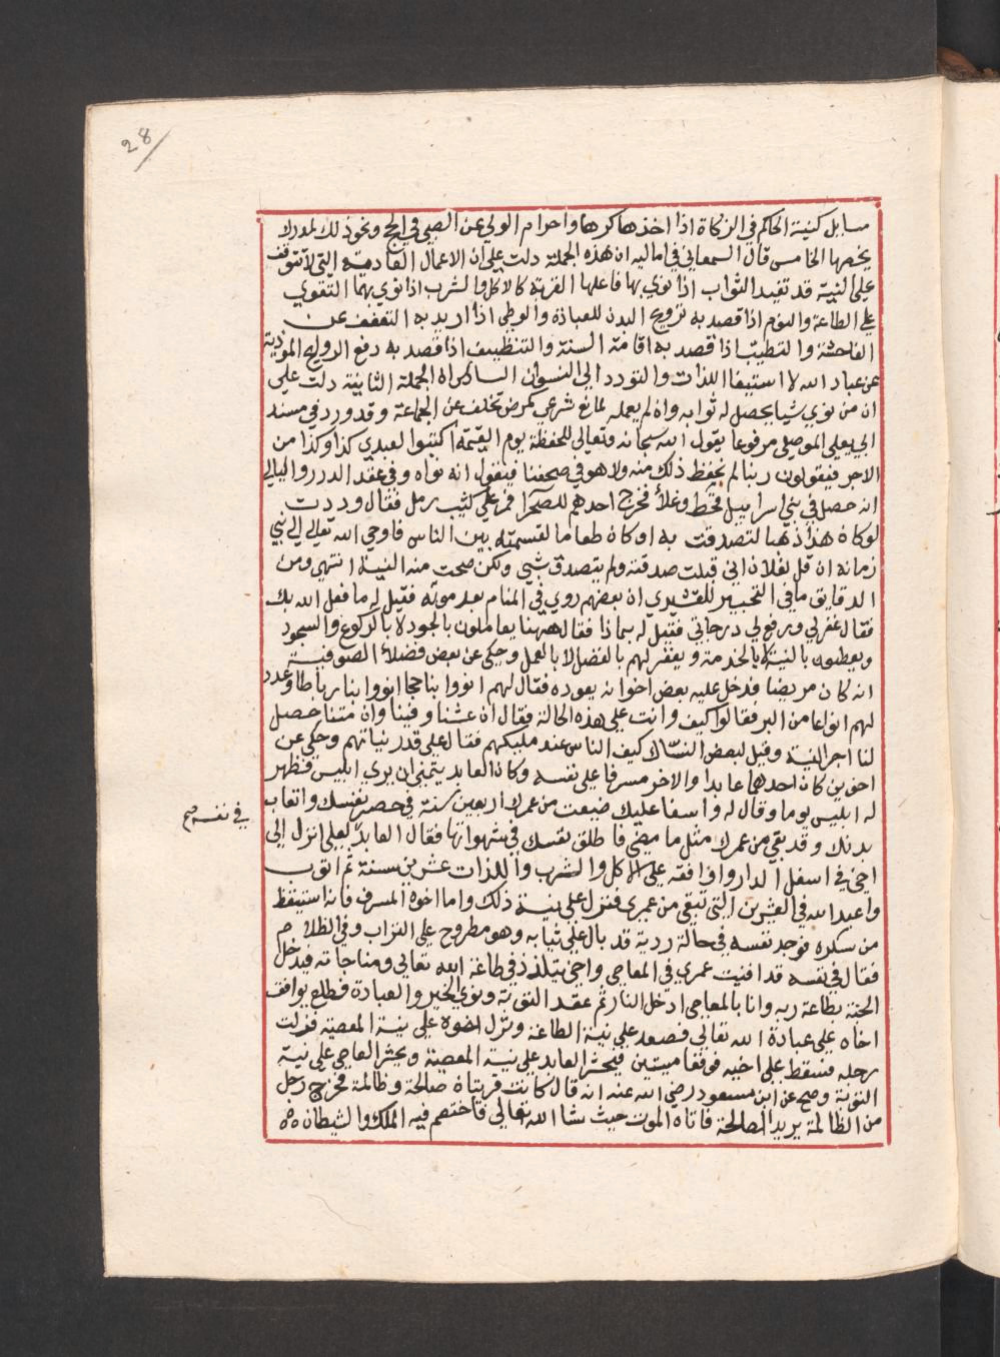 28
مسايل كنية الحاكم في الزكاة اذا اخذها كرها واحرام الولي عن الصبي في الحج ونحو ذلك لمدرك
يخصها الخامس قال السمعاني في اماليه ان هذه الجملة دلت على ان الاعمال العادية التي لا تتوقف
على النية قد تفيد الثواب اذا نوي بها فاعلها القربة كالاكل والشرب اذا نوي بهما التقوي
على الطاعة والنوم اذا قصد به ترويح البدن للعبادة والوطي اذا اريد به التعفف عن
الفاحشة والتطيب اذا قصد به اقامة السنة والتنظيف اذا قصد به دفع الروايح الموذية
عن عباد الله لا استيفا اللذات والتودد الي النسوان السادس ان الجملة الثانية دلت على
ان من نوي شيا يحصل له ثوابه وان لم يعمله لمانع شرعي كمرض تخلف عن الجماعة وقد ورد في مسند
ابي يعلي الموصلي مرفوعا يقول الله سبحانه وتعالي للحفظة يوم القيمة اكتبوا لعبدي كذا وكذا من
الاجر فيقولون ربنا لم نحفظ ذلك منه ولا هو في صحفنا فيقول انه نواه وفي عقد الدرر واللئالي
انه حصل في بني اسراييل قحط وغلا فخرج احدهم للصحرا فمر علي كثيب رمل فقال وددت
لو كان هذا ذهبا لتصدقت به او كان طعاما لقسمته بين الناس فاوحي الله تعالي الي نبي
زمانه ان قل لفلان اني قبلت صدقته ولم يتصدق بشي ولكن صحت منه النية انتهي ومن
الدقايق ما في التحبير للقشيري ان بعضهم روي في المنام بعد موته فقيل له ما فعل الله بك
فقال غفر لي ورفع لي درجاتي فقيل له بماذا فقال ههنا يعاملون بالجود لا بالركوع والسجود
ويعطون بالنية لا بالخدمة ويغفر لهم بالفضل لا بالعمل وحكي عن بعض فضلا الصوفية
انه كان مريضا فدخل عليه بعض اخوانه يعوده فقال لهم انووا بنا حجا انووا بنا رباطا وعدد
لهم انواعا من البر فقالوا كيف وانت على هذه الحالة فقال ان عشنا وفينا وان متنا حصل
لنا اجر النية وقيل لبعض النساك كيف الناس عند مليكهم فقال على قدر نياتهم وحكي عن
اخوين كان احدهما عابدا والاخر مسرفا على نفسه وكان العابد يتمني ان يري ابليس فظهر
له ابليس يوما وقال له وا سفا عليك ضيعت من عمرك اربعين سنة في حصر نفسك واتعاب
في نفسه صح
بدنك وقد بقي من عمرك مثل ما مضي فاطلق نفسك في شهواتها فقال العابد لعلي انزل الي
اخي في اسفل الدار واوافقه على الاكل والشرب واللذات عشرين سنة ثم اتوب
واعبد الله في العشرين التي تبقي من عمري فنزل على نية ذلك واما اخوه المسرف فانه استيقظ
من سكره فوجد نفسه في حالة ردية قد بال على ثيابه وهو مطروح على التراب وفي الظلام
فقال في نفسه قد افنيت عمري في المعاصي واخي يتلذذ في طاعة الله تعالي ومناجاته فيدخل
الجنة بطاعة ربه وانا بالمعاصي ادخل النار ثم عقد التوبة ونوي الخير والعبادة فطلع يوافق
اخاه على عبادة الله تعالي فصعد على نية الطاعة ونزل اخوه على نية المعصية فزلت
رجله فسقط على اخيه فوقعا ميتين فيحشر العابد على نية المعصية ويحشر العاصي على نية
التوبة وصح عن ابن مسعود رضي الله عنه انه قال كانت قريتان صالحة وظالمة فخرج رجل
من الظالمة يريد الصالحة فاتاه الموت حيث شا الله تعالي فاختصم فيه الملك والشيطان